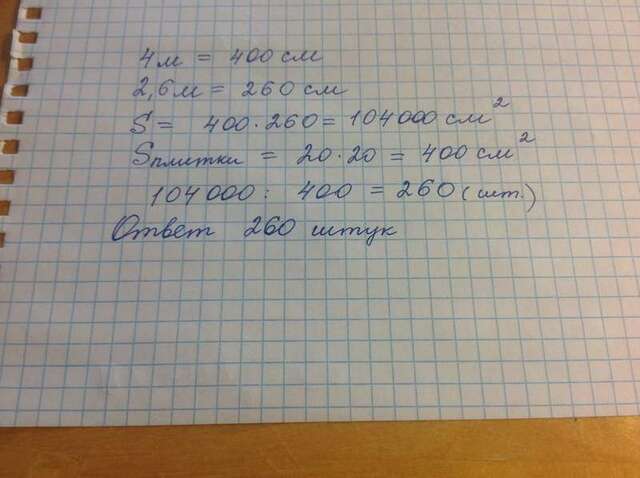 4м = 400 см
2,6м = 260 см
S = 400 · 260 = 104000 см²
Sплитки = 20 · 20 = 400 см²
104000 : 400 = 260 (шт.)
Ответ 260 штук